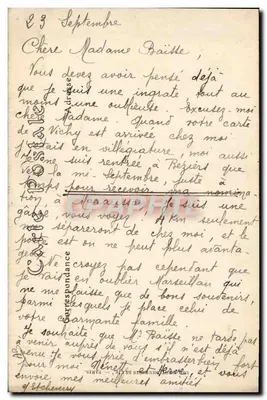 23 Septembre
Chère Madame Baïsse,
Vous devez avoir pensé déjà
que je suis une ingrate tout au
moins une oublieuse. Excusez-moi
chère Madame. Quand votre carte
de Vichy est arrivée chez moi
j'étais en villégiature, moi aussi
Je ne suis rentrée à Béziers que
vers la mi-Septembre, juste
pour recevoir ma nomina
tion à
vous voyez 4 Km seulement
me sépareront de chez moi et le
poste est on ne peut plus avanta-
geux
Ne croyez pas cependant que
je l'ai en oublier Marseillan qui
ne me laisse que de bons souvenirs,
parmi lesquels je place celui de
votre charmante famille.
Je souhaite que M. Baïsse ne tarde pas
à venir auprès de vous s'il n'est déjà
venu. Je vous prie d'embrasser bien fort
pour moi et vous
envoie mes meilleures amitiés
Carte Postale
Correspondance
Adresse